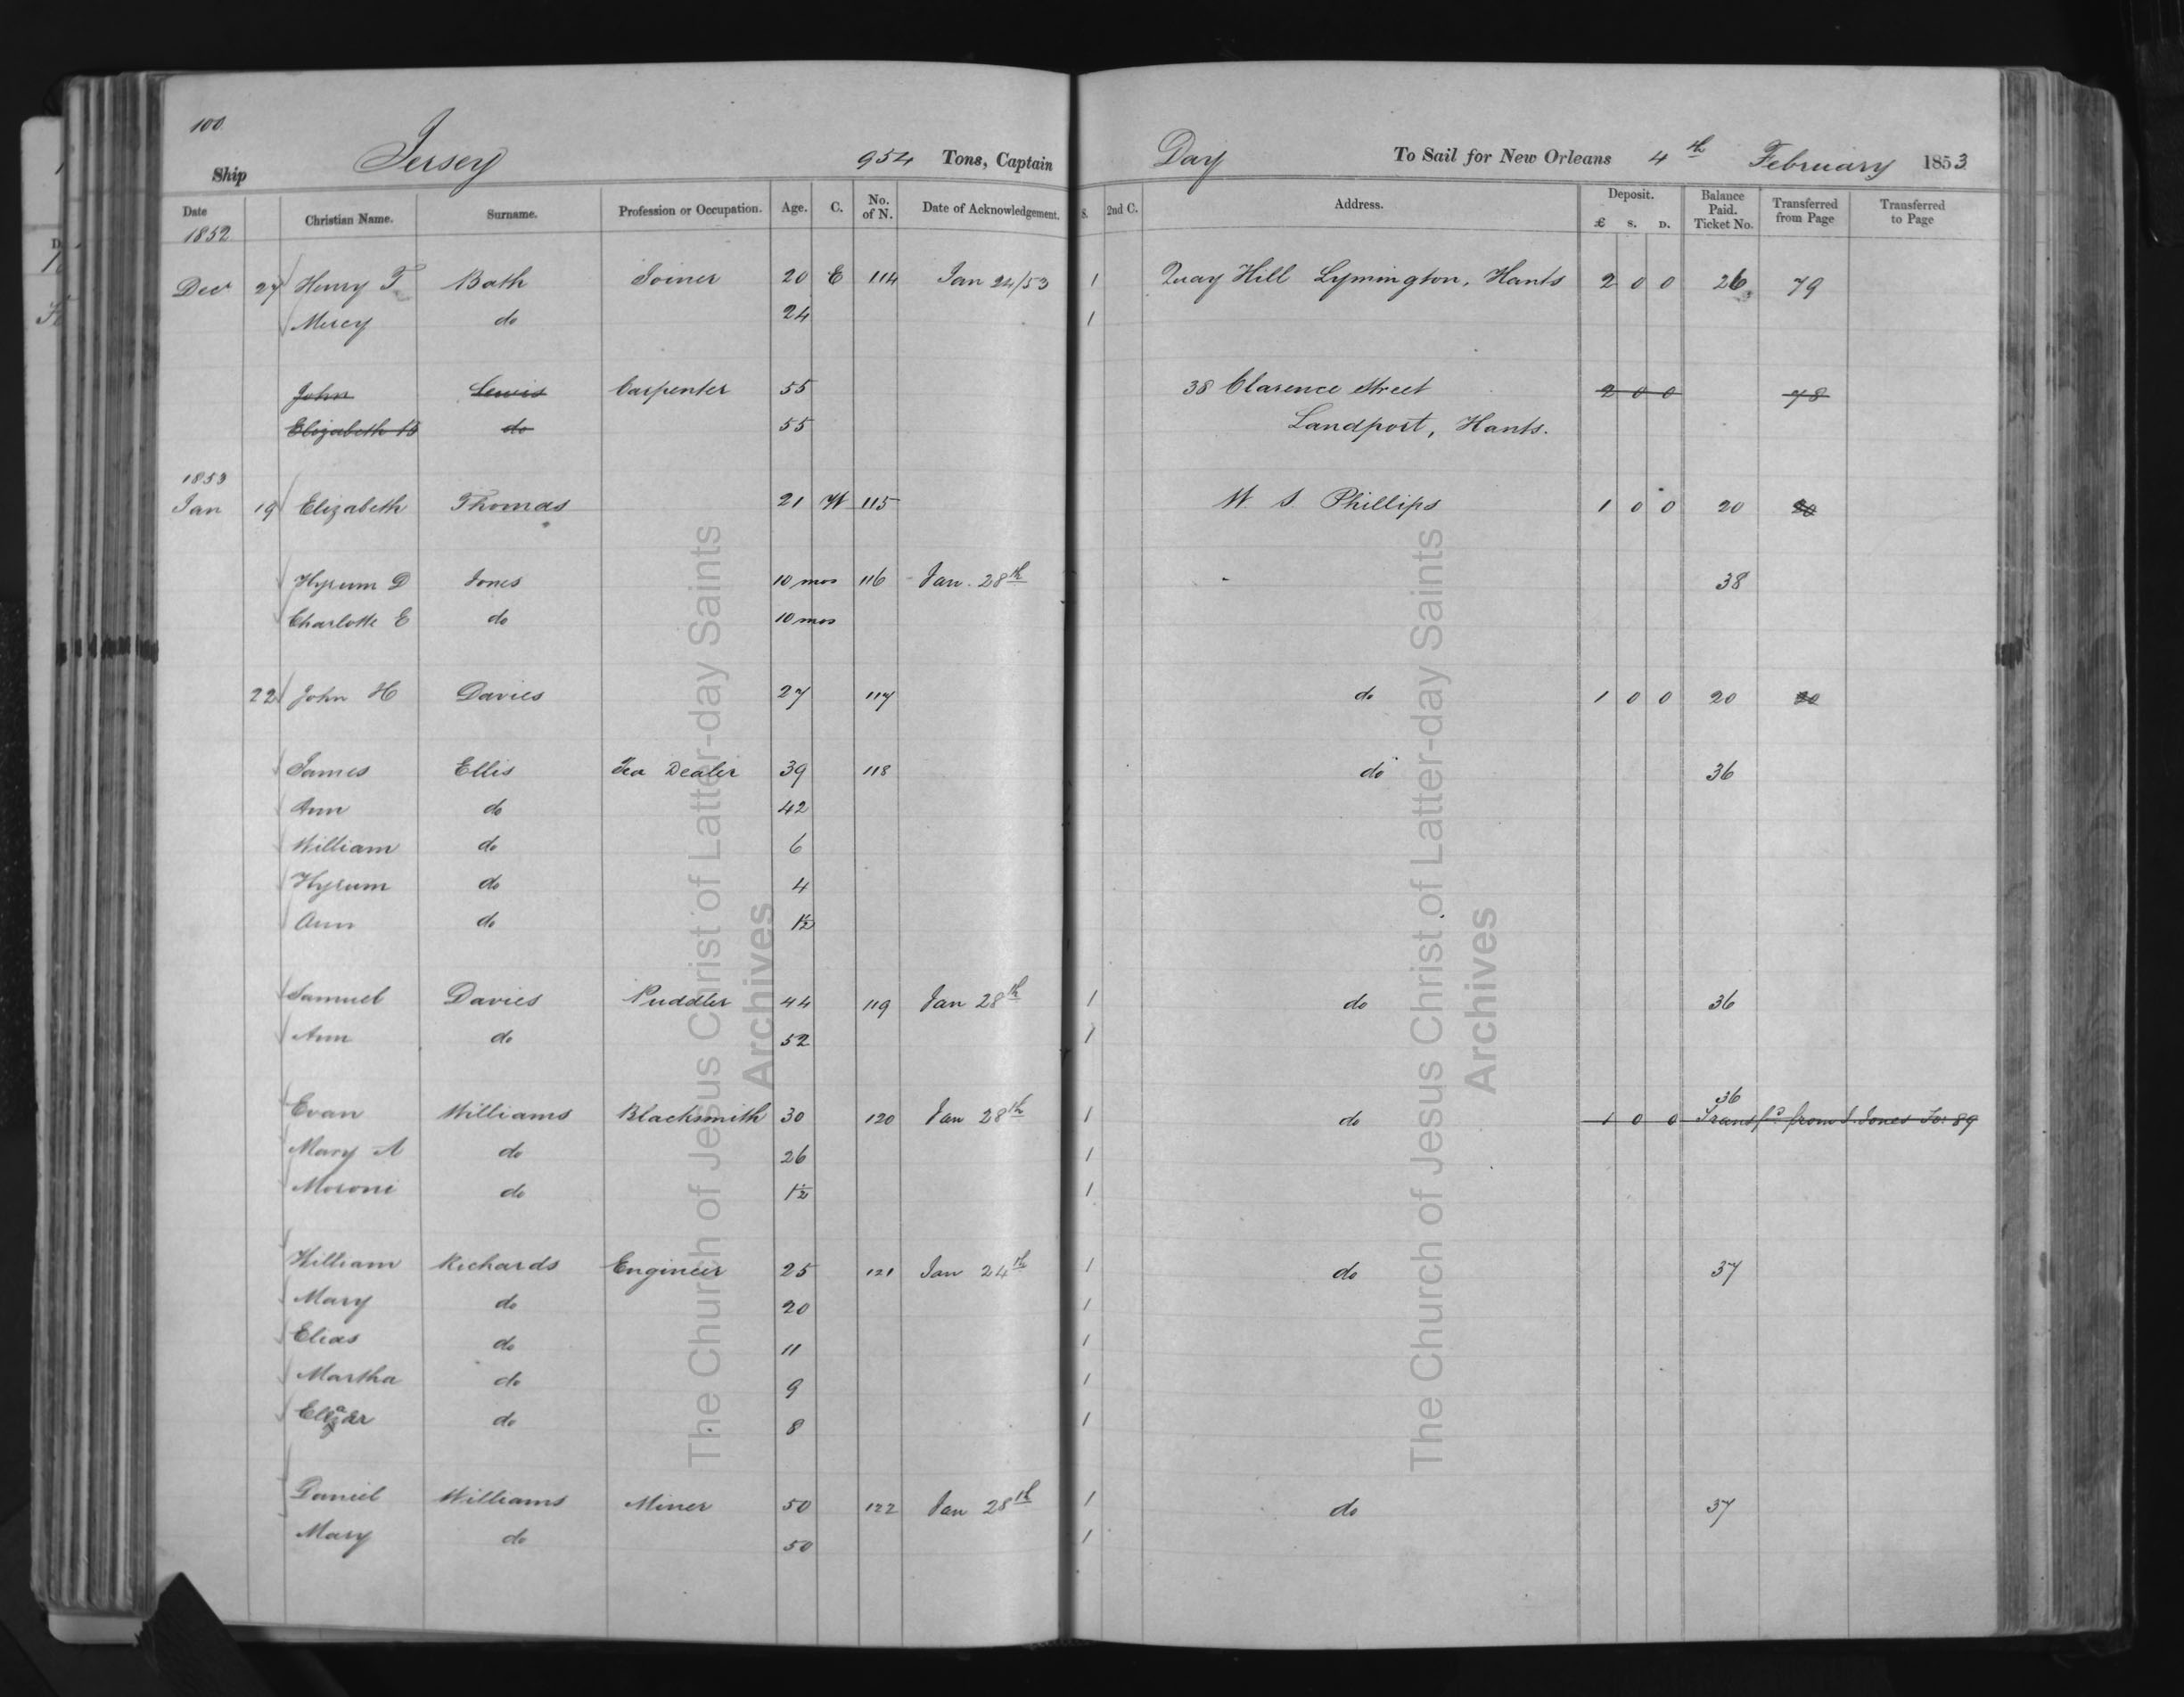 100
Ship Jersey 954 Tons, Captain Day To Sail for New Orleans 4th February 1853
Date Christian Name. Surname. Profession or Occupation. Age. C. No. of N. Date of Acknowledgement. S. 2nd C. Address. Deposit. £ S. D. Balance Paid. Ticket No. Transferred from Page Transferred to Page
1852
Dec 27 Henry T Bath Joiner 20 E 114 Jan 24/53 1 Quay Hill Lymington, Hants 2 0 0 26 79
Mercy do 24 1
John Lewis Carpenter 55 38 Clarence Street 2 0 0 78
Elizabeth do 55 Landport, Hants.
1853
Jan 19 Elizabeth Thomas 21 W 115 W. S. Phillips 1 0 0 20
Hyrum D Jones 10 mos 116 Jan. 28th 38
Charlotte E do 10 mos
22 John H Davies 27 117 do 1 0 0 20
James Ellis Tea Dealer 39 118 do 36
Ann do 42
William do 6
Hyrum do 4
Ann do 1½
Samuel Davies Puddler 44 119 Jan 28th 1 do 36
Ann do 52 1
36
Evan Williams Blacksmith 30 120 Jan 28th 1 do 1 0 0 Transfd from J. Jones Fo: 89
Mary A do 26 1
Moroni do 1½ 1
William Richards Engineer 25 121 Jan 24th 1 do 37
Mary do 20 1
Elias do 11 1
Martha do 9 1
do 8 1
Daniel Williams Miner 50 122 Jan 28th 1 do 37
Mary do 50 1
The Church of Jesus Christ of Latter-day Saints
Archives
The Church of Jesus Christ of Latter-day Saints
Archives